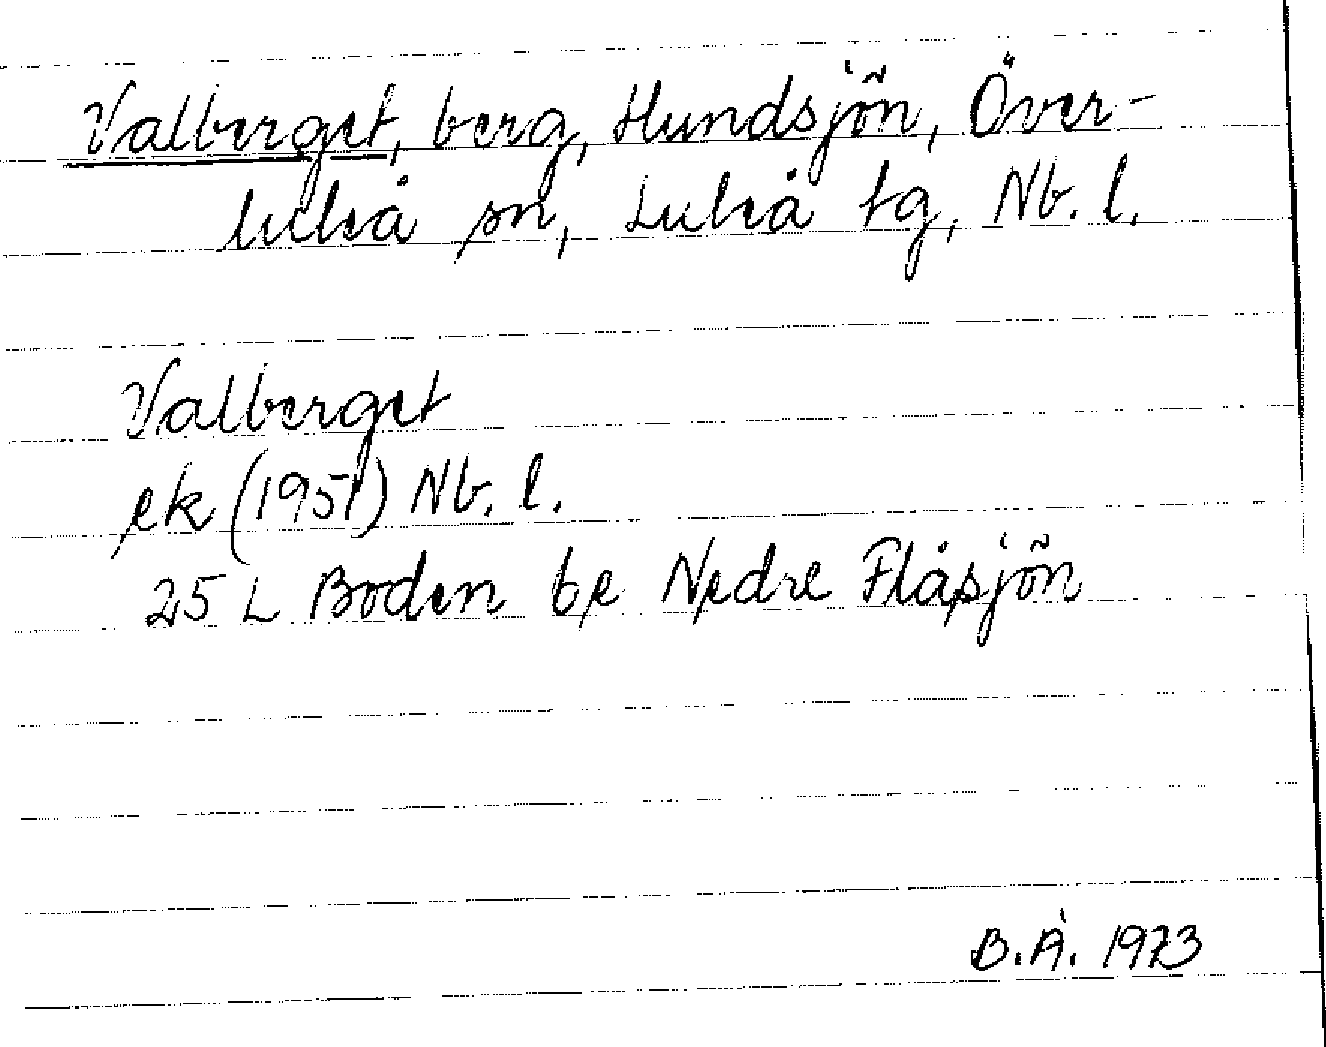 Valberget, berg, Hundsjön, Över-
luleå sn, Luleå tg, Nb. l.
Valberget
ek (1951) Nb. l.
25 L Boden 6e Nedre Flåsjön
B.Å. 1973